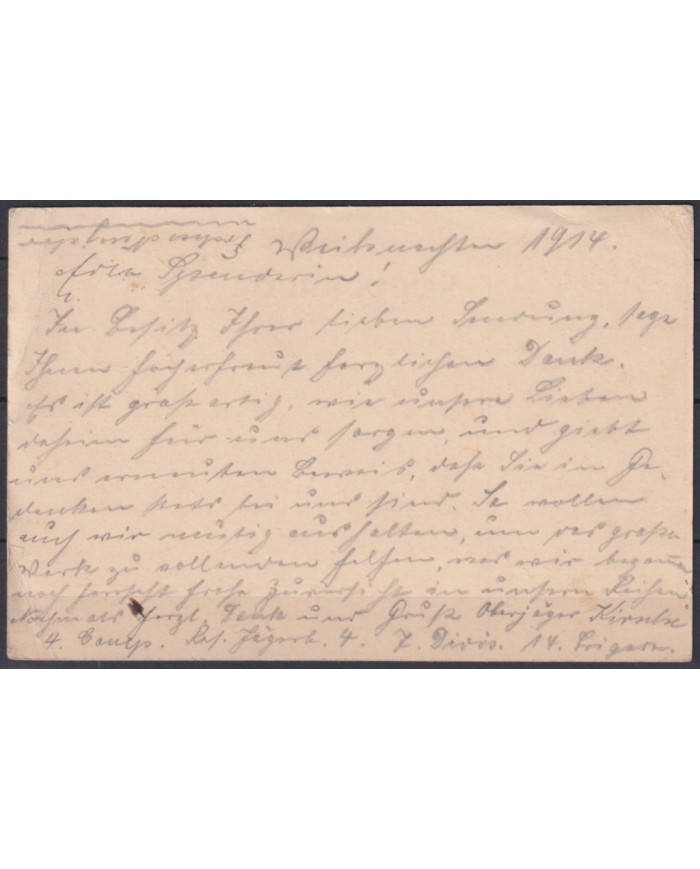 Weihnachten 1914.
Edle Spenderin!
Im Besitz Ihrer lieben Sendung, sage
Ihnen hocherfreut herzlichen Dank.
Es ist großartig, wie unsere Lieben
daheim für uns sorgen, und giebt
uns erneuten Beweis, daß Sie in Ge-
denken stets bei uns sind. So wollen
auch wir mutig aushalten, um das große
Werk zu vollenden helfen, was wir begonnen
noch herrscht frohe Zuversicht in unsern Reihen.
Nochmals herzl. Dank und Gruß Oberjäger
4. Comp. Res. Jägerb. 4. 7. Divis. 14. Brigade.